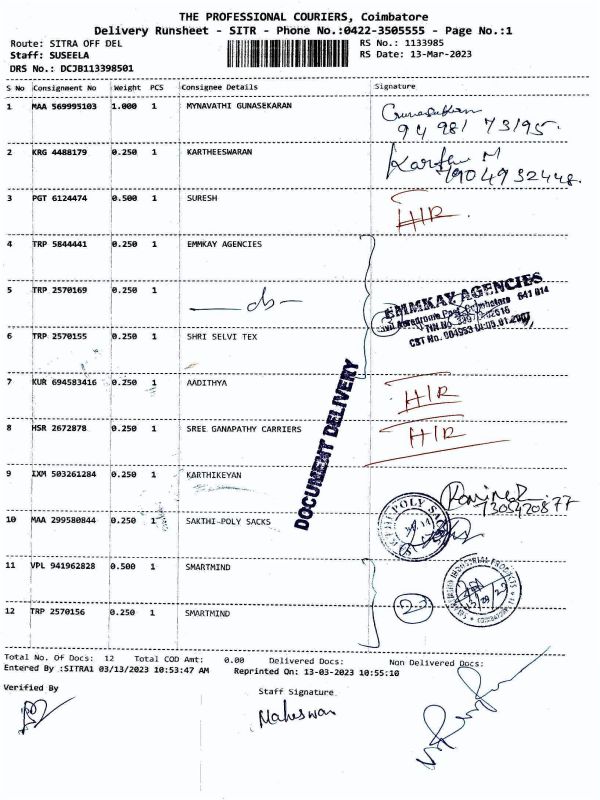 THE PROFESSIONAL COURIERS, Coimbatore
Delivery Runsheet - SITR - Phone No.:0422-3505555 - Page No.:1
Route: SITRA OFF DEL RS No.: 1133985
Staff: SUSEELA RS Date: 13-Mar-2023
DRS No.: DCJB113398501
S No Consignment No Weight PCS Consignee Details Signature
1 MAA 569995103 1.000 1 MYNAVATHI GUNASEKARAN Gunasekaran
94 981 73195.
2 KRG 4488179 0.250 1 KARTHEESWARAN Karthi M
7904932448.
3 PGT 6124474 0.500 1 SURESH H/R
4 TRP 5844441 0.250 1 EMMKAY AGENCIES
EMMKAY AGENCIES
641 014
5 TRP 2570169 0.250 1 - do -
CST No. 904953
6 TRP 2570155 0.250 1 SHRI SELVI TEX
DOCUMENT DELIVERY
7 KUR 694583416 0.250 1 AADITHYA H/R
8 HSR 2672878 0.250 1 SREE GANAPATHY CARRIERS H/R
9 IXM 503261284 0.250 1 KARTHIKEYAN
7305420877
10 MAA 299580844 0.250 1 SAKTHI-POLY SACKS
11 VPL 941962828 0.500 1 SMARTMIND
12 TRP 2570156 0.250 1 SMARTMIND
Total No. Of Docs: 12 Total COD Amt: 0.00 Delivered Docs: Non Delivered Docs:
Entered By :SITRA1 03/13/2023 10:53:47 AM Reprinted On: 13-03-2023 10:55:10
Verified By Staff Signature
Maheswari